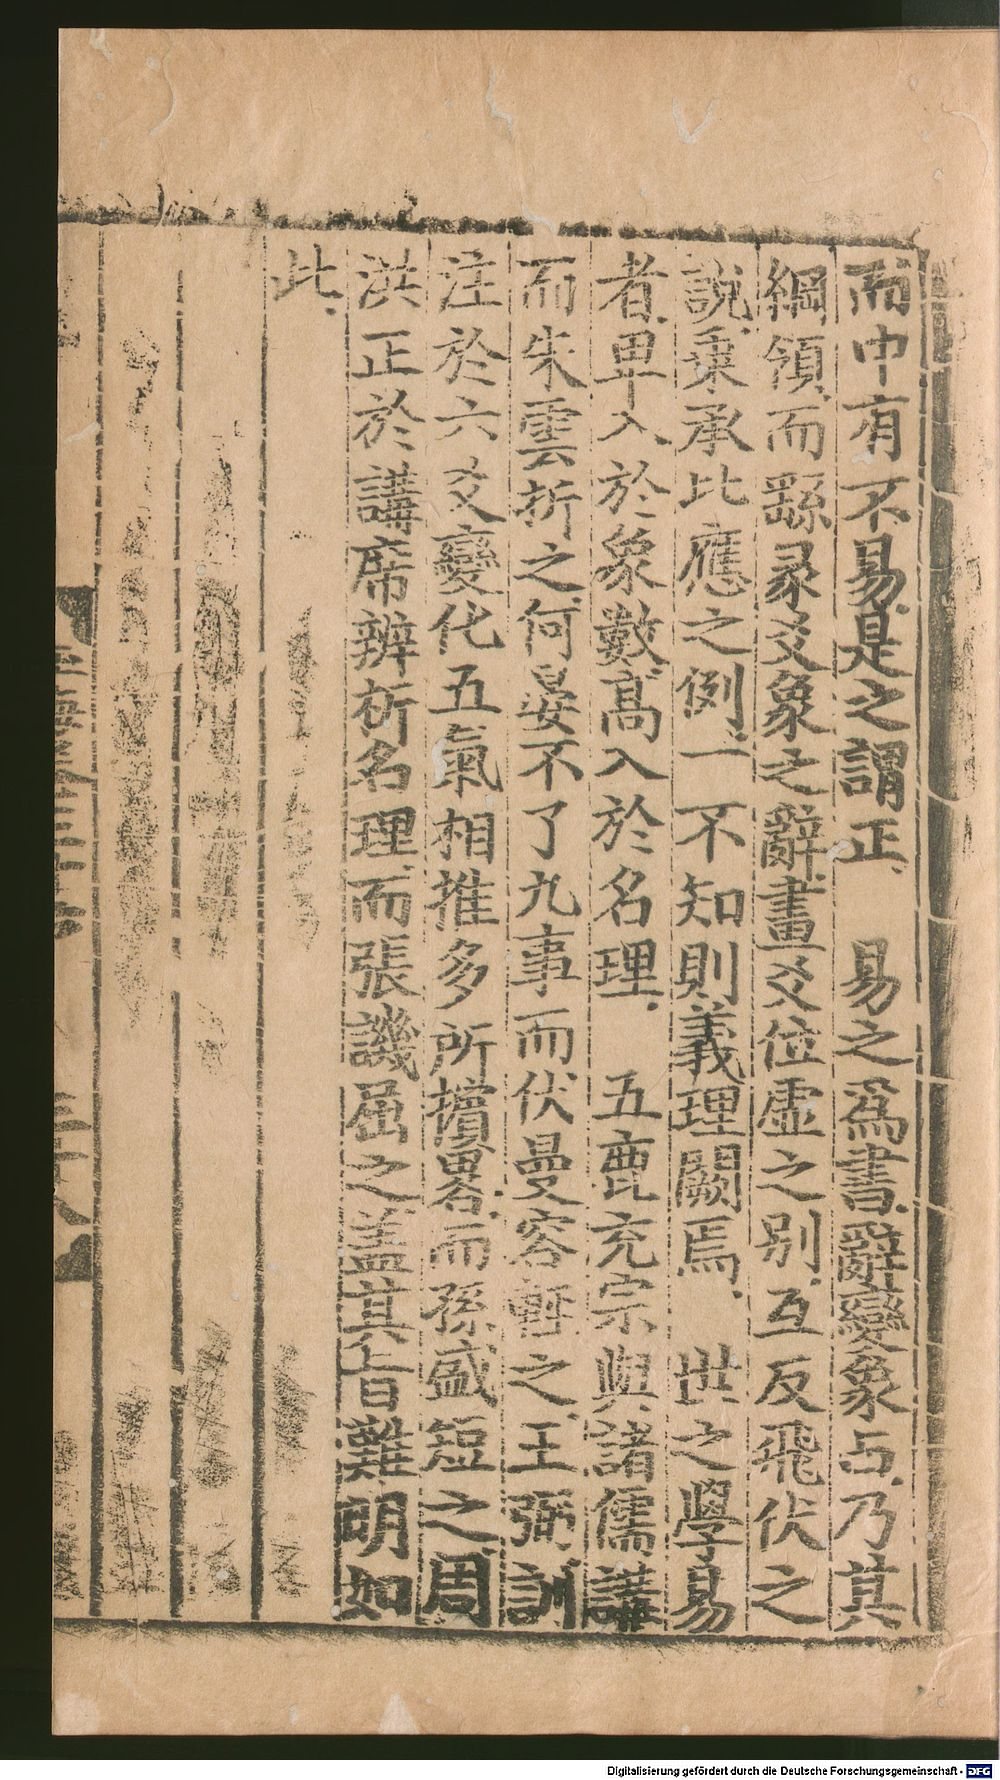 而中有不易是之謂正、　易之爲書、辭變象占、乃其
綱領、而繇彖爻象之辭、畫爻位虚之别、互反飛伏之
說、乗承比應之例、一不知則義理闕焉、　世之學易
者、卑入於象數、髙入於名理、　五鹿充宗與諸儒講
而朱雲折之、何晏不了九事而伏曼容輕之、王弼訓
注於六爻變化五氣相推多所擯畧、而孫盛短之、周
洪正於講席辨析名理、而張譏屈之、蓋其旨難明如
此、
Digitalisierung gefördert durch die Deutsche Forschungsgemeinschaft - DFG